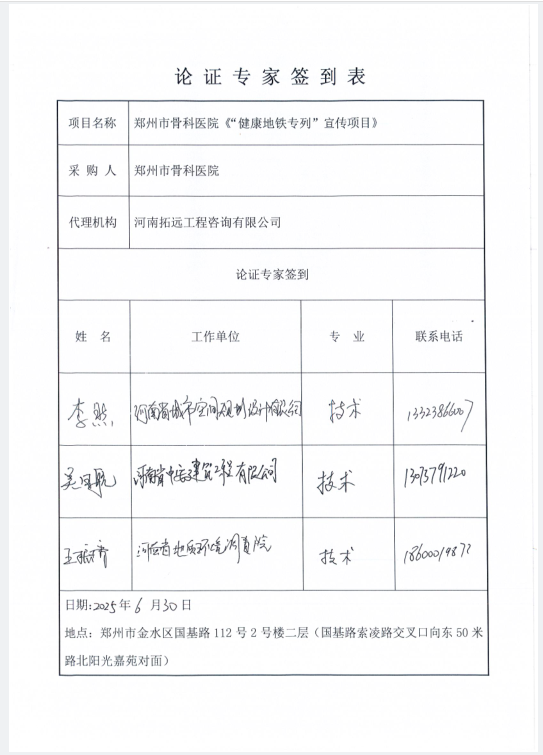 论证专家签到表
项目名称 郑州市骨科医院《“健康地铁专列”宣传项目》
采购人 郑州市骨科医院
代理机构 河南拓远工程咨询有限公司
论证专家签到
姓名 工作单位 专业 联系电话
李然 河南省城市空间规划设计有限公司 技术
河南省中 建筑工程有限公司 技术 13013791220
王 河南省地质环境调查院 技术
日期:2025年6月30日
地点：郑州市金水区国基路112号2号楼二层（国基路索凌路交叉口向东50米
路北阳光嘉苑对面）